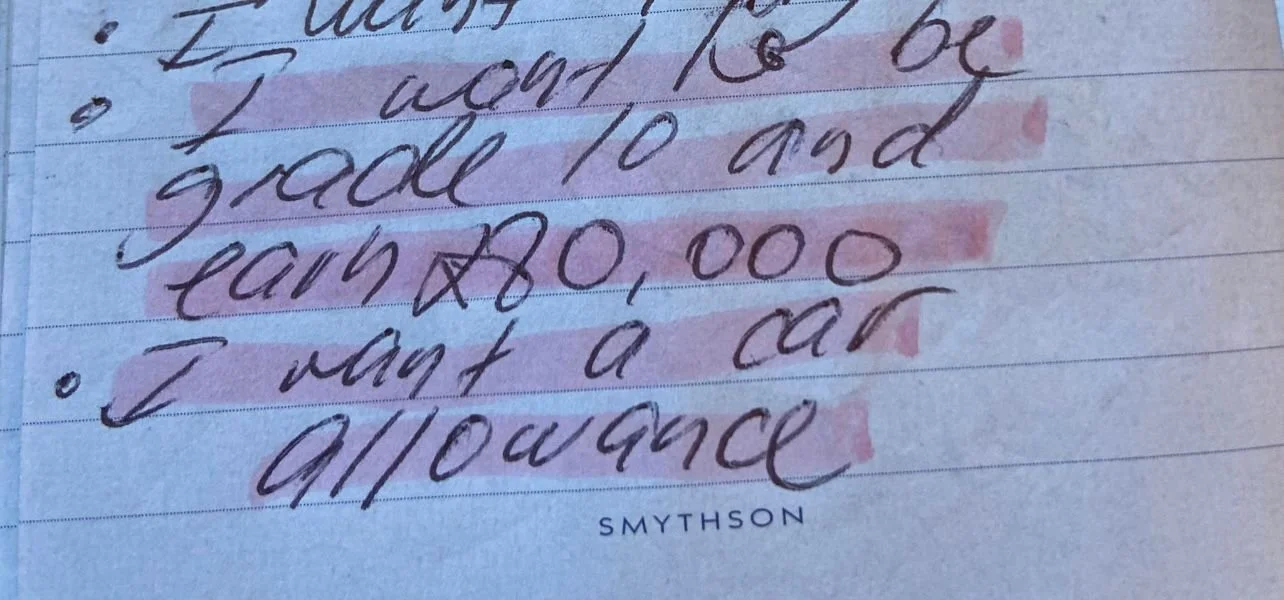 • I want
• I want to be
grade 10 and
earn £80,000
• I want a car
allowance
SMYTHSON